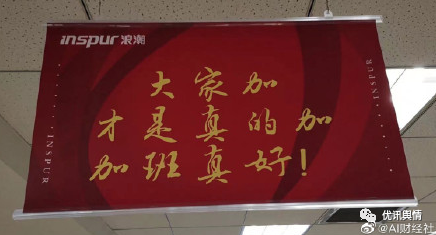 inspur 浪潮
大家加
才是真的加
加班真好！
INSPUR
INSPUR
优讯舆情
@AI财经社